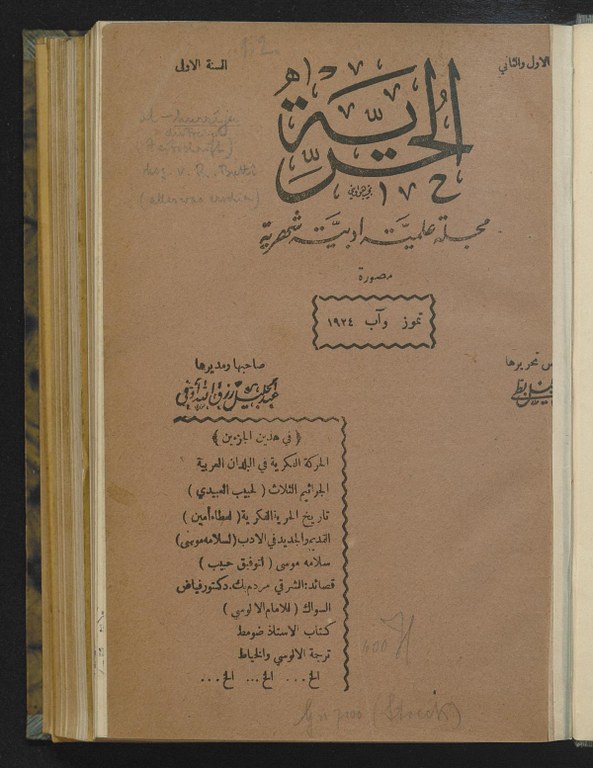 السنة الاولى
الاول والثاني
الحرية
مجلة علمية ادبية شهرية
مصورة
تموز وآب ١٩٢٤
صاحبها ومديرها
س تحريرها
عبد الجليل رزق الله اوفي
(في هذين الجزءين)
الحركة الفكرية في البلدان العربية
الجرائيم الثلاث (لحبيب العبيدي)
تاريخ الحرية الفكرية (لعطاء أمين)
القديم والجديد في الادب (لسلامه موسى)
سلامه موسى (لتوفيق حبيب)
قصائد: الشرقي مردم بك. دكتور فياض
السواك (للامام الالوسي)
كتاب الاستاذ ضومط
ترجمة الالوسي والخياط
الخ... الخ... الخ...
600